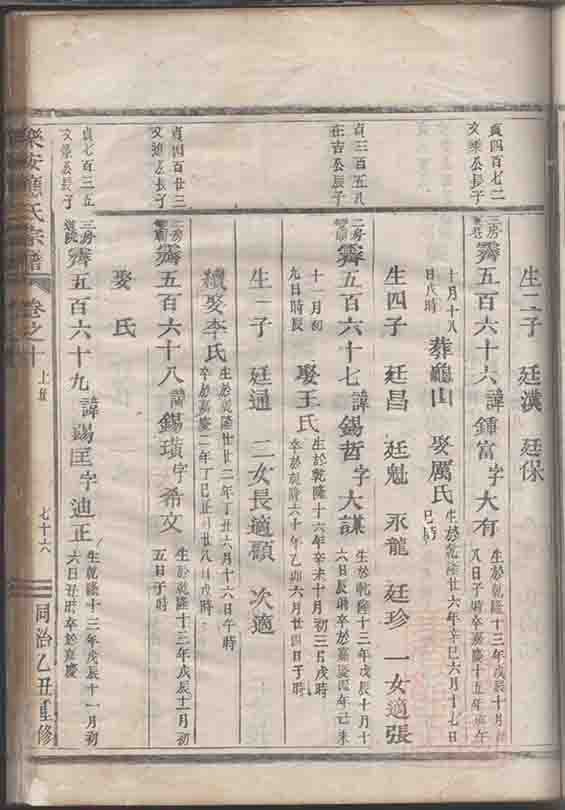 生二子　廷漢　廷保
貞四百七二
文樂公長子
三房
霽五百六十六諱鍾富字大有
生於乾隆十三年戊辰十月
八日子時卒嘉慶十五年庚午
十月十八
日戌時
葬龜山
娶厲氏
生於乾隆廿六年辛巳六月十七日
巳時
生四子　廷昌　廷魁　永龍　廷珍　一女適張
貞三百五八
在吉公長子
二房
霽五百六十七諱錫哲字大謀
生於乾隆十三年戊辰十月十
六日辰時卒於嘉慶四年己未
十一月初
九日時長
娶王氏
生於乾隆十六年辛未十月初三辰時
卒於乾隆六十年乙卯六月廿四日子時
生一子　廷通　二女長適顧　次適
續娶李氏
生於乾隆廿二年丁丑六月十六日午時
卒於嘉慶二年丁巳正月廿八日戌時
貞四百廿三
文總公長子
三房
霽五百六十八諱錫璜字希文
生於乾隆十三年戊辰十一月初
五日子時
娶氏
貞七百三五
文榮公長子
三房
霽五百六十九諱錫匡字迪正
生乾隆十三年戊辰十一月初
六日丑時卒於嘉慶
樂安應氏宗譜　卷之十　上　七十六　同治乙丑重修